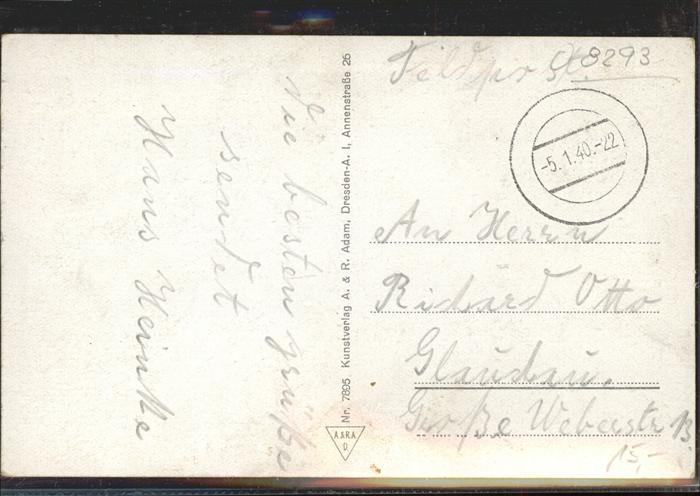 Die besten grüße
sendet
Hans Heinke
Nr. 7895 Kunstverlag A. & R. Adam, Dresden-A. I, Annenstraße 25
A&RA
D.
Feldpost.
8293
-5.1.40.-22
An Herrn
Richard Otto
Glauchau.
Große Weberstr
15,-